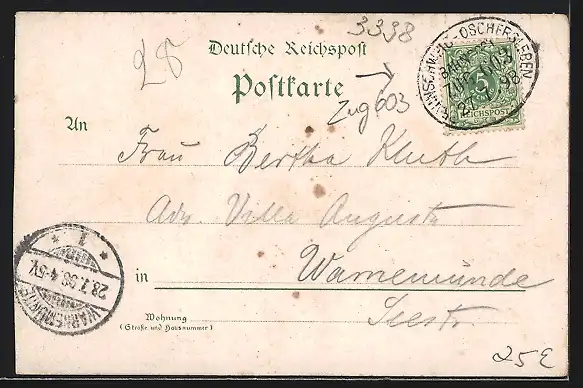 3398
28
Deutsche Reichspost
Postkarte
Zug 603
BRAUNSCHWEIG-OSCHERSLEBEN
BAHNPOST
ZUG 603
27 7 98
5
REICHSPOST
An
Frau Bertha Kluth
Adr. Villa Augusta
in Warnemünde
Seestr.
Wohnung
(Straße und Hausnummer)
WARNEMÜNDE
28.7.98 4-5N.
25E